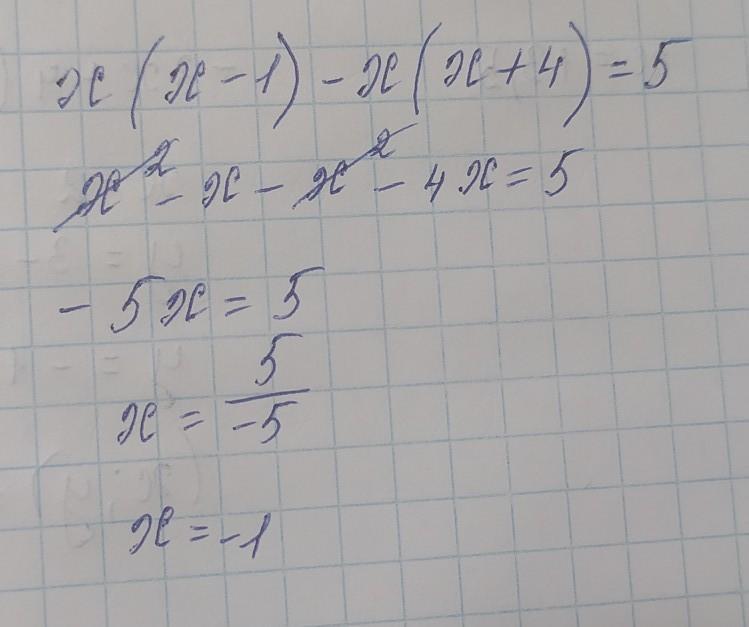 x(x-1)-x(x+4)=5
x²-x-x²-4x=5
-5x=5
x=5/-5
x=-1